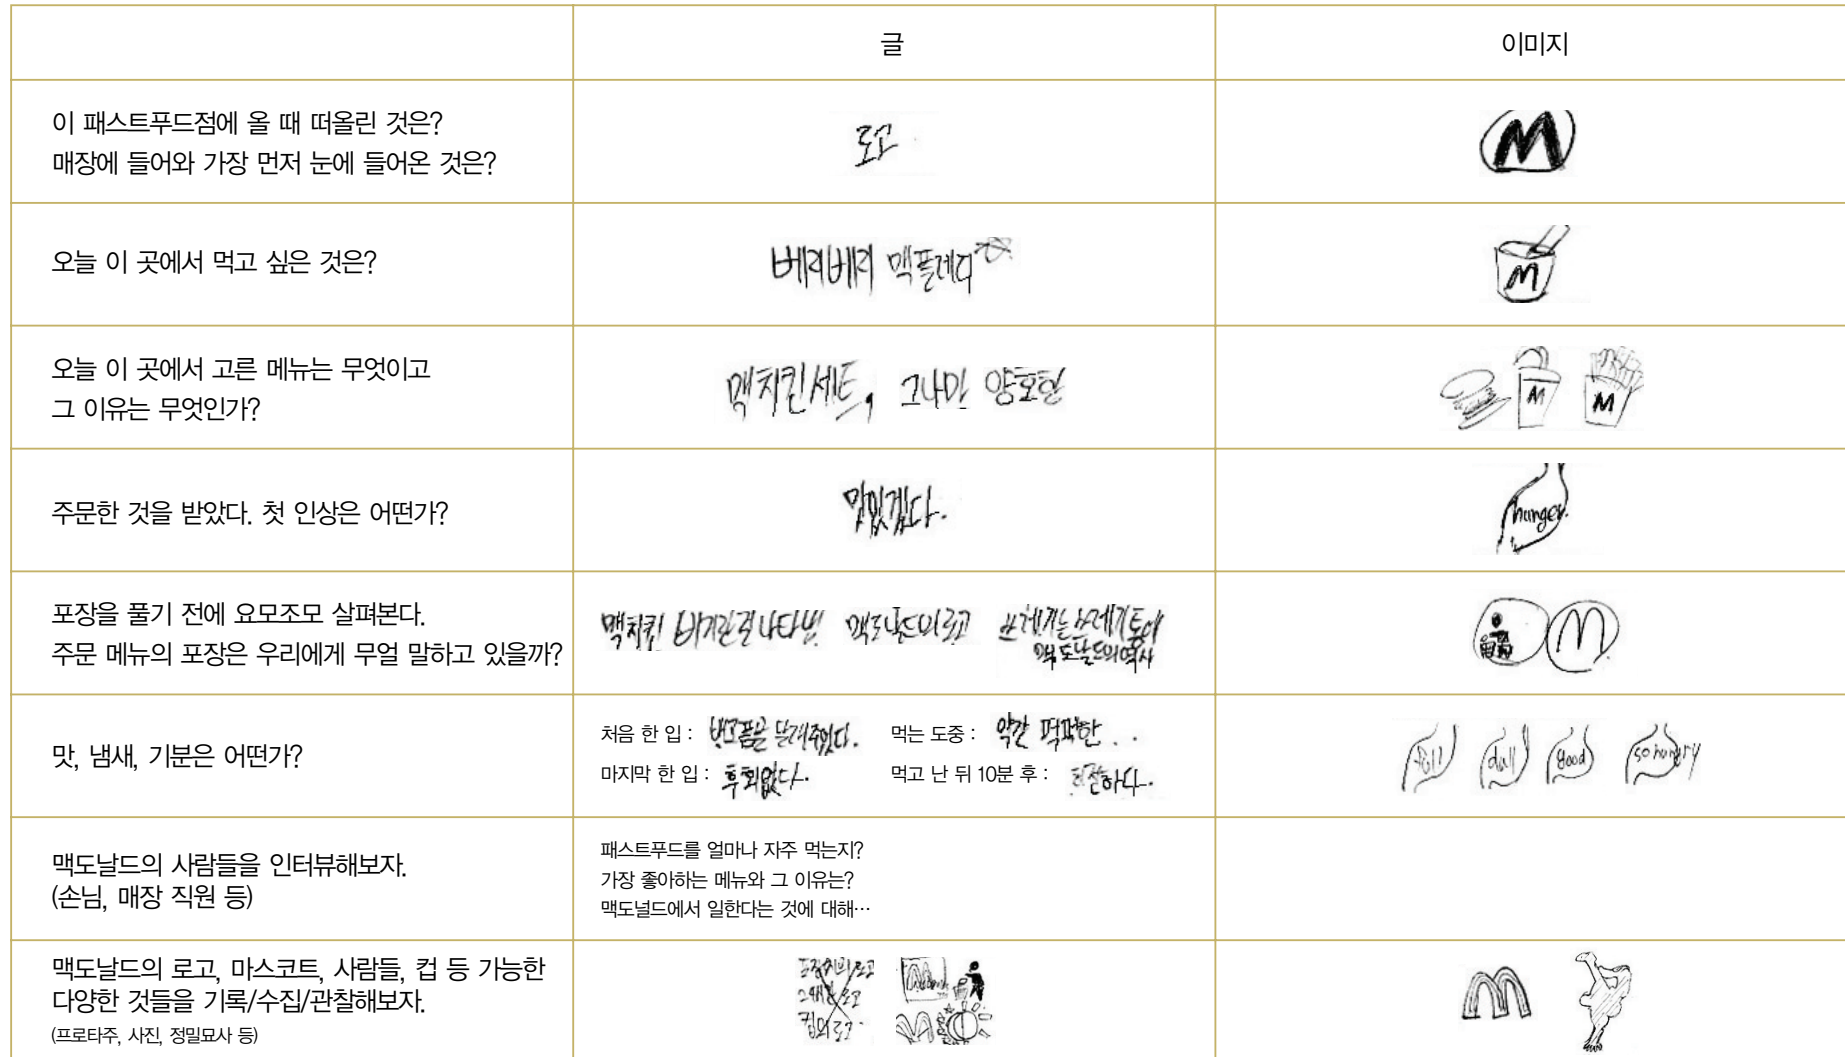 글
이미지
이 패스트푸드점에 올 때 떠올린 것은?
매장에 들어와 가장 먼저 눈에 들어온 것은?
로고
M
오늘 이 곳에서 먹고 싶은 것은?
베리베리 맥플레리
M
오늘 이 곳에서 고른 메뉴는 무엇이고
그 이유는 무엇인가?
맥치킨세트, 그나마 양호한
M
M
주문한 것을 받았다. 첫 인상은 어떤가?
맛있겠다.
hunger.
포장을 풀기 전에 요모조모 살펴본다.
주문 메뉴의 포장은 우리에게 무얼 말하고 있을까?
맥치킨 버거란걸 나타냄! 맥도날드의 로고 쓰레기는 쓰레기통에
맥도날드의 역사
M
맛, 냄새, 기분은 어떤가?
처음 한 입 : 배고픔을 달래주었다. 먹는 도중 : 약간 퍽퍽한 . .
마지막 한 입 : 후회없다. 먹고 난 뒤 10분 후 :
full dull good so hungry
맥도날드의 사람들을 인터뷰해보자.
(손님, 매장 직원 등)
패스트푸드를 얼마나 자주 먹는지?
가장 좋아하는 메뉴와 그 이유는?
맥도널드에서 일한다는 것에 대해…
맥도날드의 로고, 마스코트, 사람들, 컵 등 가능한
다양한 것들을 기록/수집/관찰해보자.
(프로타주, 사진, 정밀묘사 등)
포장지의 로고
컵의 로고
M